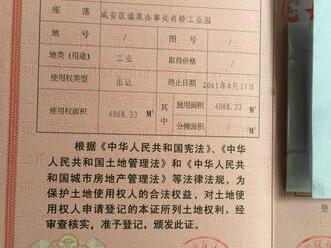 座落 咸安区温泉办事处肖桥工业园
地号 / 图号 /
地类（用途） 工业 取得价格 /
使用权类型 出让 终止日期 2061年8月17日
使用权面积 4068.33 M² 其中 独用面积 4068.33 M²
分摊面积 / M²
根据《中华人民共和国宪法》、《中华
人民共和国土地管理法》和《中华人民共
和国城市房地产管理法》等法律法规，为
保护土地使用权人的合法权益，对土地
使用权人申请登记的本证所列土地权利，经
审查核实，准予登记，颁发此证。